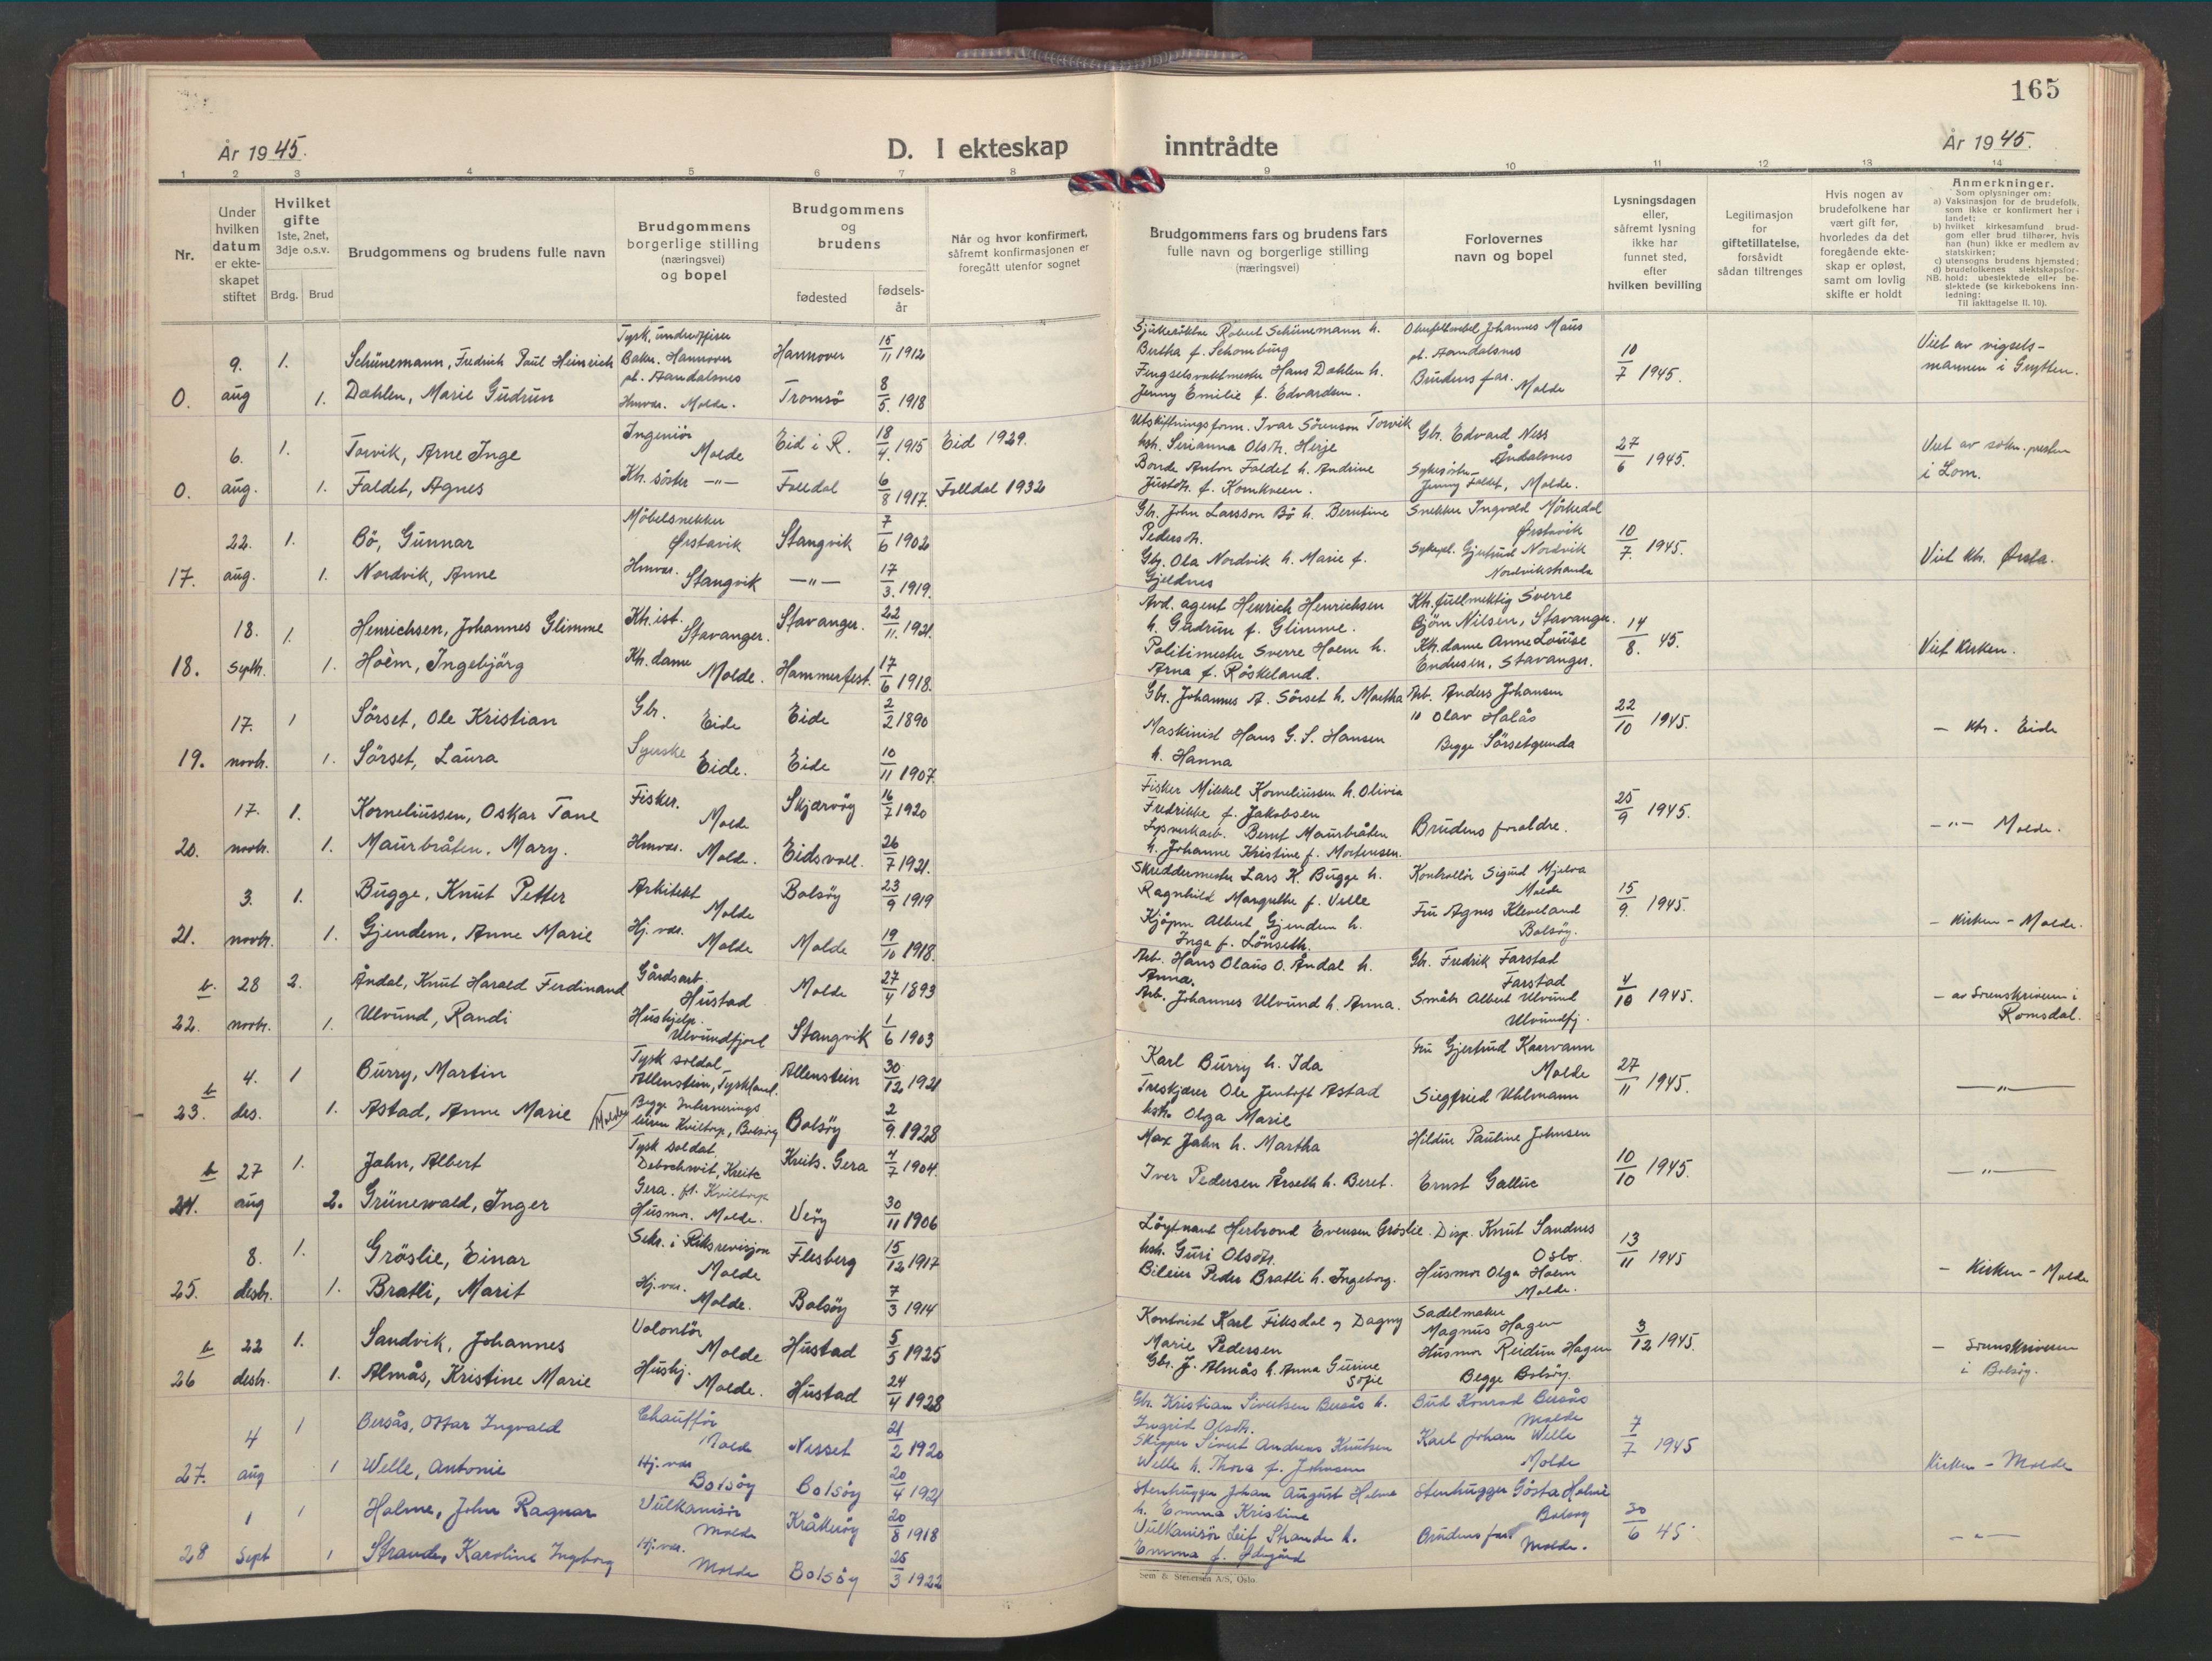 165
År 1945.
D. I ekteskap inntrådte
År 1945.
1 2 3 4 5 6 7 8 9 10 11 12 13 14
Nr.
Under hvilken datum er ekte-skapet stiftet
Hvilket gifte 1ste, 2net, 3dje o.s.v.
Brdg. Brud
Brudgommens og brudens fulle navn
Brudgommens borgerlige stilling (næringsvei) og bopel
Brudgommens og brudens
fødested
fødsels-år
Når og hvor konfirmert, såfremt konfirmasjonen er foregått utenfor sognet
Brudgommens fars og brudens fars fulle navn og borgerlige stilling (næringsvei)
Forlovernes navn og bopel
Lysningsdagen eller, såfremt lysning ikke har funnet sted, efter hvilken bevilling
Legitimasjon for giftetillatelse, forsåvidt sådan tiltrenges
Hvis nogen av brudefolkene har vært gift før, hvorledes da det foregående ekte-skap er opløst, samt om lovlig skifte er holdt
Anmerkninger.
Som oplysninger om:
a) Vaksinasjon for de brudefolk, som ikke er konfirmert her i landet;
b) hvilket kirkesamfund brud-gom eller brud tilhører, hvis han (hun) ikke er medlem av statskirken;
c) utensogns brudens hjemsted;
d) brudefolkenes slektskapsfor-hold: ubeslektede eller be-slektede (se kirkebokens inn-ledning:
NB.
Til iakttagelse II. 10).
9. 1. Schünemann, Fredrich Paul Heinrich Tysk. underoffiser Baker. Hannover pt. Aandalsnes Hannover 15/11 1912 Sjukerøkter Robert Schünemann h. Bertha f. Schomburg Johannes Maus pt. Aandalsnes 10/7 1945. Viet av vigsels-mannen i Grytten.
0. aug 1. Dahlen, Marie Gudrun Hmvær. Molde. Tromsö 8/5. 1918 Fengselsvaktmester Hans Dahlen h. Jenny Emilie f. Edvardsen. Brudens far. Molde
6. 1. Torvik, Arne Inge Ingeniör Molde Eid i R. 18/4. 1915 Eid 1929. Utskiftningsform. Ivar Sörenson Torvik hsh. Serianna Olsdtr. Herje Gbr. Edvard Ness Åndalsnes 27/6 1945. Viet av sokn.presten i Lom.
0. aug. 1. Faldet, Agnes Kh. söster —"— Folldal 6/8 1917. Folldal 1932 Bonde Anton Faldet h. Andrine Jenny Faldet, Molde.
22. 1. Bö, Gunnar Möbelsnekker Ørstavik Stangvik 7/6 1902 Gbr. John Larsson Bö h. Berntine Pedersdtr. Snekker Ingvald Mörkedal Ørstavik 10/7. 1945. Viet ktr. Ørsta.
17. aug. 1. Nordvik, Anne Hmvær. Stangvik —"— 17/3. 1919. Gbr. Ola Nordvik h. Marie f. Gjeldnes Sykepl. Gjertrud Nordvik Nordvikstranda
18. 1. Henrichsen, Johannes Glimme Kh.ist. Stavanger. Stavanger. 22/11. 1921. Avd. agent Henrich Henrichsen h. Gudrun f. Glimme. Kh.fullmektig Sverre Björn Nilsen, Stavanger. 14/8. 45. Viet Kirken.
18. Septh. 1. Hoèm, Ingebjörg Kh. dame Molde. Hammerfest. 17/6 1918. Politimester Sverre Hoem h. Arna f. Röskeland. Kh.dame Anne Louise Endresen, Stavanger.
17. 1 Sörset, Ole Kristian Gbr. Eide Eide 2/2 1890 Gbr. Johannes A. Sörset h. Martha Arb. Anders Johansen 22/10 1945. — Ktr. Eide
19. novbr. 1. Sörset, Laura Syerske Eide. Eide 10/11 1907. Maskinist Hans G. S. Hansen h. Hanna " Olav Halås Begge Sörsetgrenda
17. 1. Korneliussen, Oskar Tane Fisker. Molde Skjærvöy 16/7 1920 Fisker Mikkel Korneliussen h. Olivia Fredrikke f. Jakobsen Brudens foreldre. 25/9 1945. —"— Molde.
20. novbr. 1. Maurbråten, Mary. Hmvær. Molde. Eidsvoll. 26/7 1921. Bernt Maurbråten h. Johanne Kristine f. Mortensen.
3. 1. Bugge, Knut Petter Arkitekt Molde Bolsöy 23/9 1919 Skreddermester Lars K. Bugge h. Ragnhild Margrethe f. Velle Kontrollör Sigurd Mjelva Molde 15/9. 1945. — Kirken - Molde.
21. novbr. 1. Gjendem, Anne Marie Hj. vær. Molde Molde 19/10 1918. Kjöpm Albert Gjendem h. Inga f. Lönseth. Fru Agnes Kleveland Bolsöy.
b. 28 2. Åndal, Knut Harald Ferdinand Gårdsarb. Hustad Molde 27/4 1893 Arb. Hans Olaus O. Åndal h. Anna. Gbr. Fredrik Farstad Farstad 4/10 1945. — av Sorenskriveren i Romsdal.
22. novbr. 1. Ulvund, Randi Hushjelp. Ulvundfjord Stangvik 1/6 1903 Arb. Johannes Ulvund h. Anna. Småbr Albert Ulvund Ulvundfj.
b 4. 1 Burry, Martin Tysk soldat Allenstein, Tyskland. Allenstein 30/12 1921 Karl Burry h. Ida Fru Gjertrud Kaarvann Molde 27/11 1945. —"—
23. des. 1. Astad, Anne Marie Molde Begge Internerings leiren Kviltorp, Bolsöy Bolsöy 2/9. 1928 Treskjærer Ole Jentoft Astad hsh. Olga Marie Siegfried Uhlmann
b 27 1. Jahn, Albert Tysk soldat. Debschwit, Kreits Gera. pt. Kviltorp Kreits. Gera 4/7 1904. Max Jahn h. Martha Hildur Pauline Johnsen 10/10 1945. —"—
24. aug 2. Grünewald, Inger Husmor. Molde. Veöy 30/11 1906 Iver Pedersen Årseth h. Beret. Ernst Galluc
8. 1. Gröslie, Einar Sekr. i Riksrevisjon Molde Flesberg 15/12 1917 Löytnant Herbrand Evensen Gröslie hsh. Guri Olsdtr. Disp. Knut Sandnes Oslo. 13/11 1945 — Kirken - Molde
25. desbr. 1. Bratli, Marit Hj. vær. Molde. Bolsöy 7/3 1914 Bileier Peder Bratli h. Ingeborg. Husmor Olga Hoem Molde.
b 22 1. Sandvik, Johannes Volontör Molde Hustad 5/5 1925 Kontorist Karl Fiksdal og Dagny Marie Pedersen Sadelmaker Magnus Hagen 3/12 1945. — Sorenskriveren i Bolsöy.
26 desbr. 1. Almås, Kristine Marie Hushj. Molde. Hustad 24/4 1928 Gbr. J. Almås h. Anna Gurine Sofie Husmor Reidun Hagen Begge Bolsöy.
4 1 Bersås, Ottar Ingvald Chaufför Molde Nesset 21/2 1920 Gbr. Kristian Sivertsen Bersås h. Ingrid Olsdtr. Bud Konrad Bersås Molde 7/7 1945 Kirken - Molde
27. aug 1 Welle, Antonie Hj. vær Bolsöy Bolsöy 20/4 1921 Skipper Sivert Andreas Knutsen Welle h. Thora f. Johnsen Karl Johan Welle Molde
1 1 Holme, John Ragnar Vulkanisör Molde Kråkeröy 20/8 1918 Stenhugger Johan August Holme h. Emma Kristine Stenhugger Gösta Holme Bolsöy 30/6 45. —"—
28 Sept 1 Strande, Karoline Ingborg Hj. vær. Molde Bolsöy 25/3 1922 Vulkanisör Leif Strande h. Emma f. Ödegård Brudens far Molde.
Sem & Stenersen A/S, Oslo